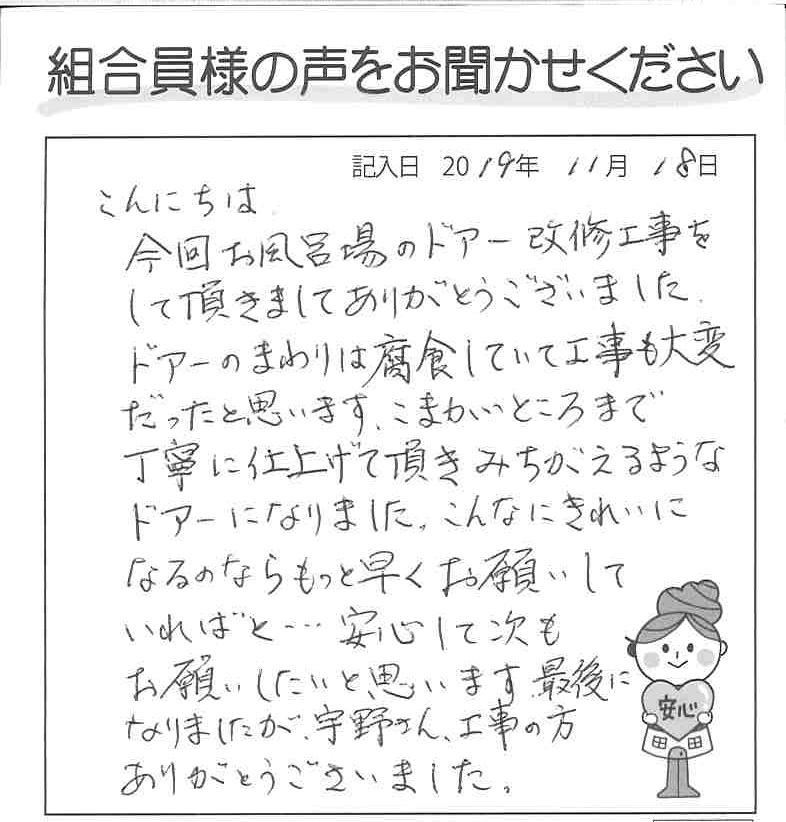 組合員様の声をお聞かせください
記入日 2019年 11月 18日
こんにちは
今回お風呂場のドアー改修工事を
して頂きましてありがとうございました.
ドアーのまわりは腐食していて工事も大変
だったと思います、こまかいところまで
丁寧に仕上げて頂きみちがえるような
ドアーになりました。こんなにきれいに
なるのならもっと早くお願いして
いればと… 安心して次も
お願いしたいと思います 最後に
なりましたが、宇野さん、工事の方
ありがとうございました。
安心